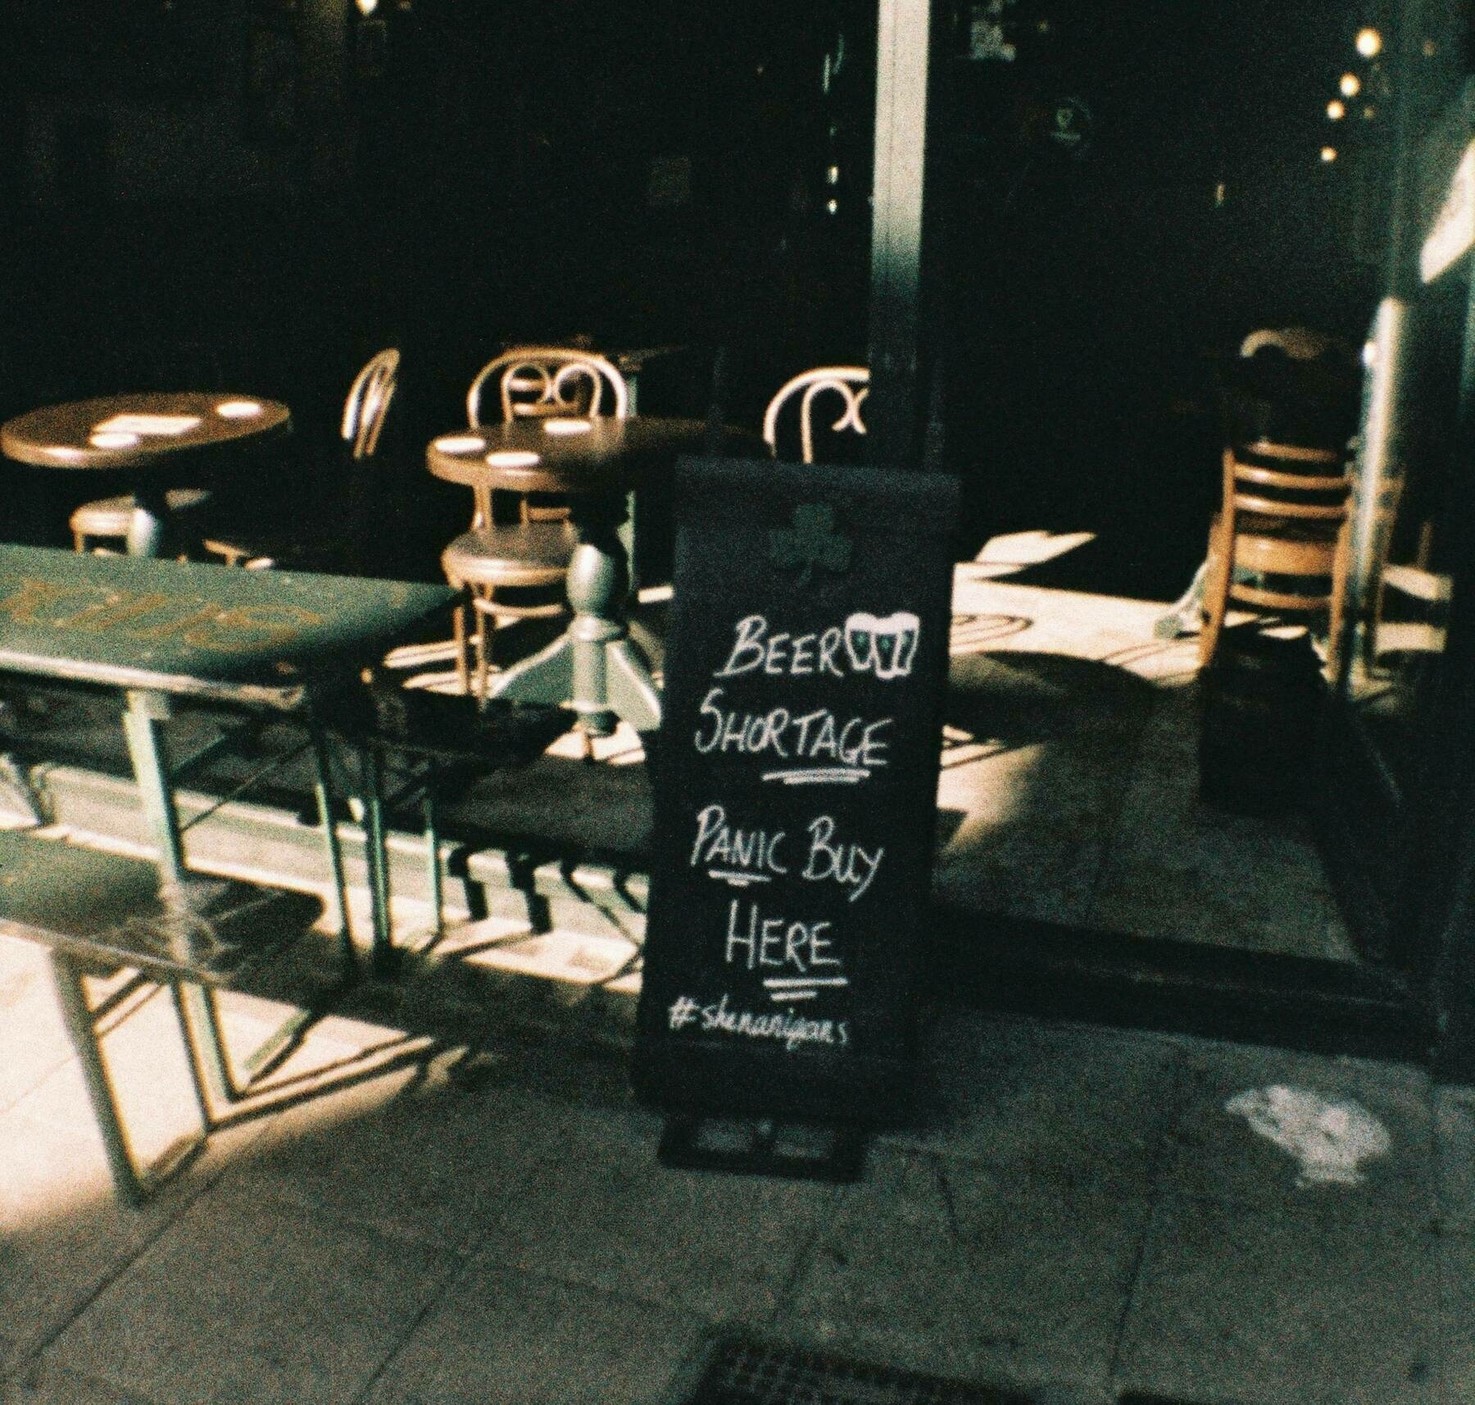 BEER
SHORTAGE
PANIC BUY
HERE
#shenanigans